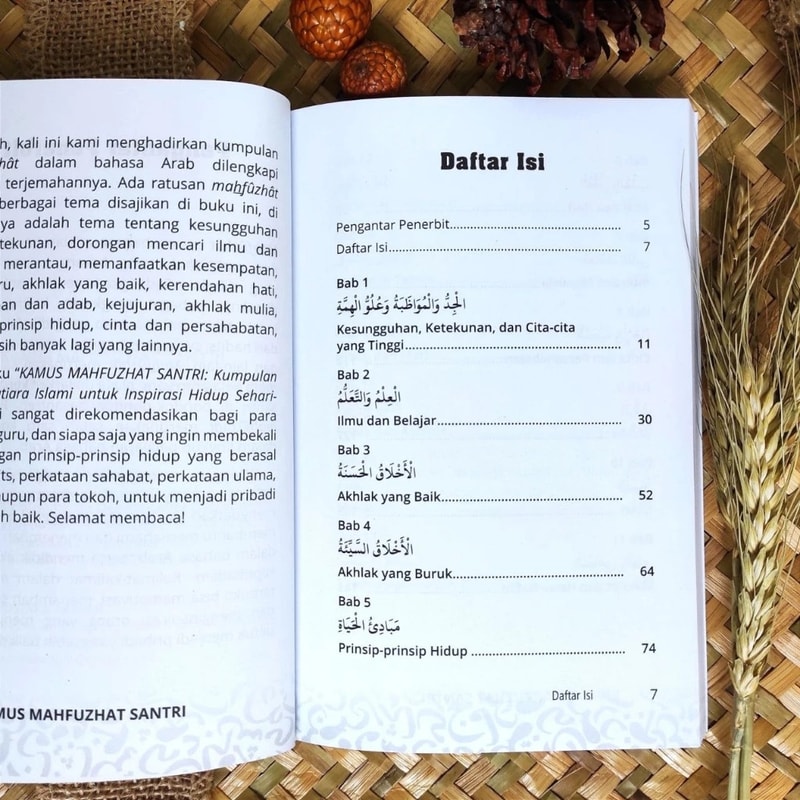 h, kali ini kami menghadirkan kumpulan
hât dalam bahasa Arab dilengkapi
terjemahannya. Ada ratusan mahfûzhât
berbagai tema disajikan di buku ini, di
ya adalah tema tentang kesungguhan
etekunan, dorongan mencari ilmu dan
merantau, memanfaatkan kesempatan,
ru, akhlak yang baik, kerendahan hati,
an dan adab, kejujuran, akhlak mulia,
prinsip hidup, cinta dan persahabatan,
sih banyak lagi yang lainnya.
ku "KAMUS MAHFUZHAT SANTRI: Kumpulan
tiara Islami untuk Inspirasi Hidup Sehari-
i sangat direkomendasikan bagi para
guru, dan siapa saja yang ingin membekali
gan prinsip-prinsip hidup yang berasal
ts, perkataan sahabat, perkataan ulama,
upun para tokoh, untuk menjadi pribadi
h baik. Selamat membaca!
MUS MAHFUZHAT SANTRI
Daftar Isi
Pengantar Penerbit............................................. 5
Daftar Isi............................................................ 7
Bab 1
الْجِدُّ وَالْمُوَاظَبَةُ وَعُلُوُّ الْهِمَّةِ
Kesungguhan, Ketekunan, dan Cita-cita
yang Tinggi......................................................... 11
Bab 2
الْعِلْمُ وَالتَّعَلُّمُ
Ilmu dan Belajar................................................. 30
Bab 3
الْأَخْلَاقُ الْحَسَنَةُ
Akhlak yang Baik................................................ 52
Bab 4
الْأَخْلَاقُ السَّيِّئَةُ
Akhlak yang Buruk............................................. 64
Bab 5
مَبَادِئُ الْحَيَاةِ
Prinsip-prinsip Hidup ........................................ 74
Daftar Isi 7